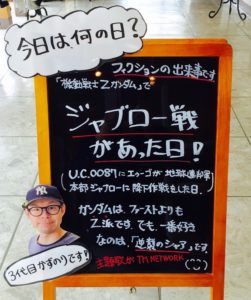 今日は、何の日?
フィクションの出来事です
「機動戦士Zガンダム」で
ジャブロー戦
があった日!
(U.C.0087にエゥーゴが地球連邦軍
本部ジャブローに降下作戦をした日。)
ガンダムは、ファーストよりも
Z派です。でも、一番好き
なのは、「逆襲のシャア」です。
主題歌がTM NETWORK
3代目かずのりです!